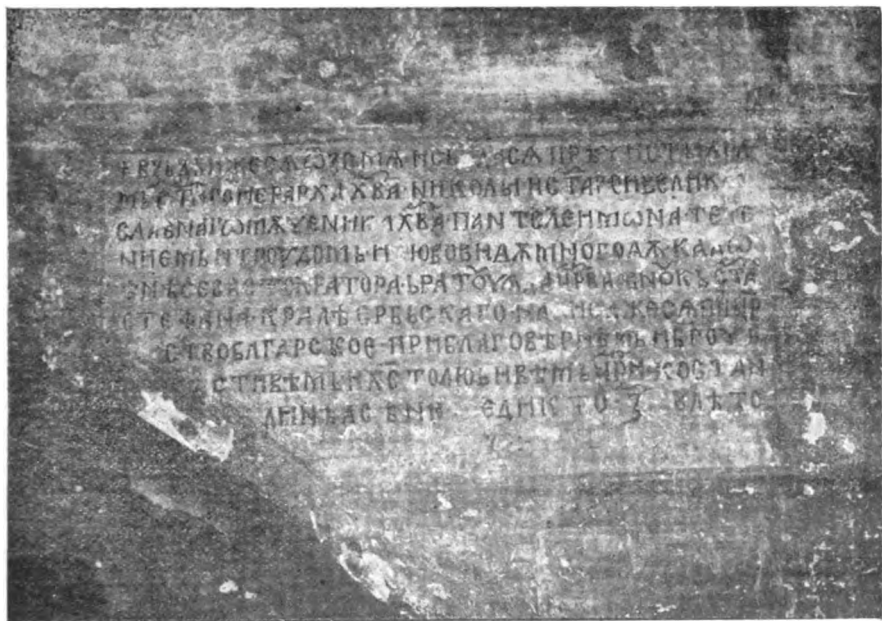 + ВЪЗДВИЖЕ СѦ Ѿ ЗЕМѦ И СЪЗДА СѦ ПРѢЧИСТЫ ХРА
МЬ СТГО ИЕРАРХА ХВА НИКОЛЫ И СТАГО И ВЕЛИКО
СЛАВНАГО МѪЧЕНИКА ХВА ПАНТЕЛЕИМѠНА · ТЕЧЕ
НИЕМЬ И ТРОУДОМЬ И ЛЮБОВИѪ МНОГОѪ · КАЛѠ
ѢНѢ СЕВАСТОКРАТОРА · БРАТОУЧѦДА ЦРВА · ВНОУКЬ СТА
СТЕФАНА · КРАЛѢ СРЬБСКАГО · НАПИСА ЖЕ СѦ ПРИ ЦР
СТВО БЛГАРСКОЕ · ПРИ БЛАГОВѢРНѢМЬ И БГОЧ
СТИВѢМЬ И ХСТОЛЮБИВѢМЬ ЦРИ КОСТАН
ДИНѢ АСѢНИ ЕДИКТО З В ЛѢТО